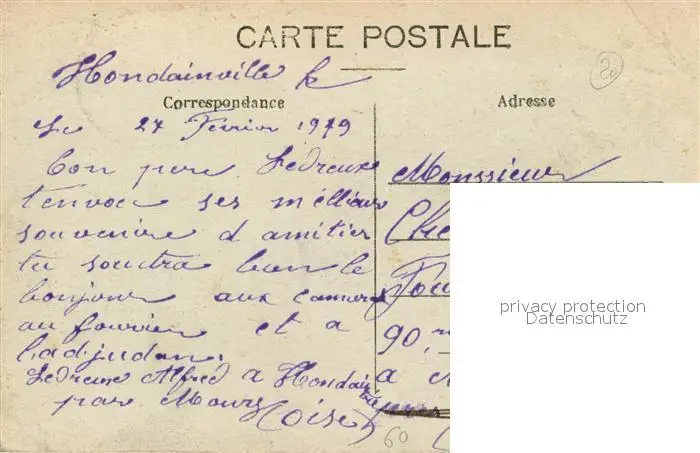 CARTE POSTALE
Hondainville le
Correspondance
Adresse
Le 27 Février 1919
Ton pere Ledreux
t'envoie ses méllieur
souvenire d amitier
tu soutra bien le
bonjour aux camarad
au fourrier et a
l'adjudan.
Ledreux Alfred a Hondain
par Mouy (Oise)
Monssieur
Che
Fou
90, r
a
60
privacy protection
Datenschutz